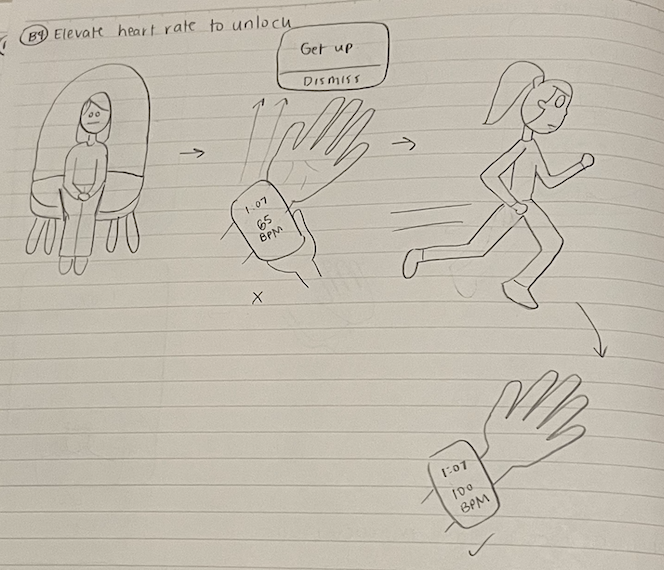 B9 Elevate heart rate to unlock
Get up
Dismiss
1:07
65
BPM
x
1:07
100
BPM